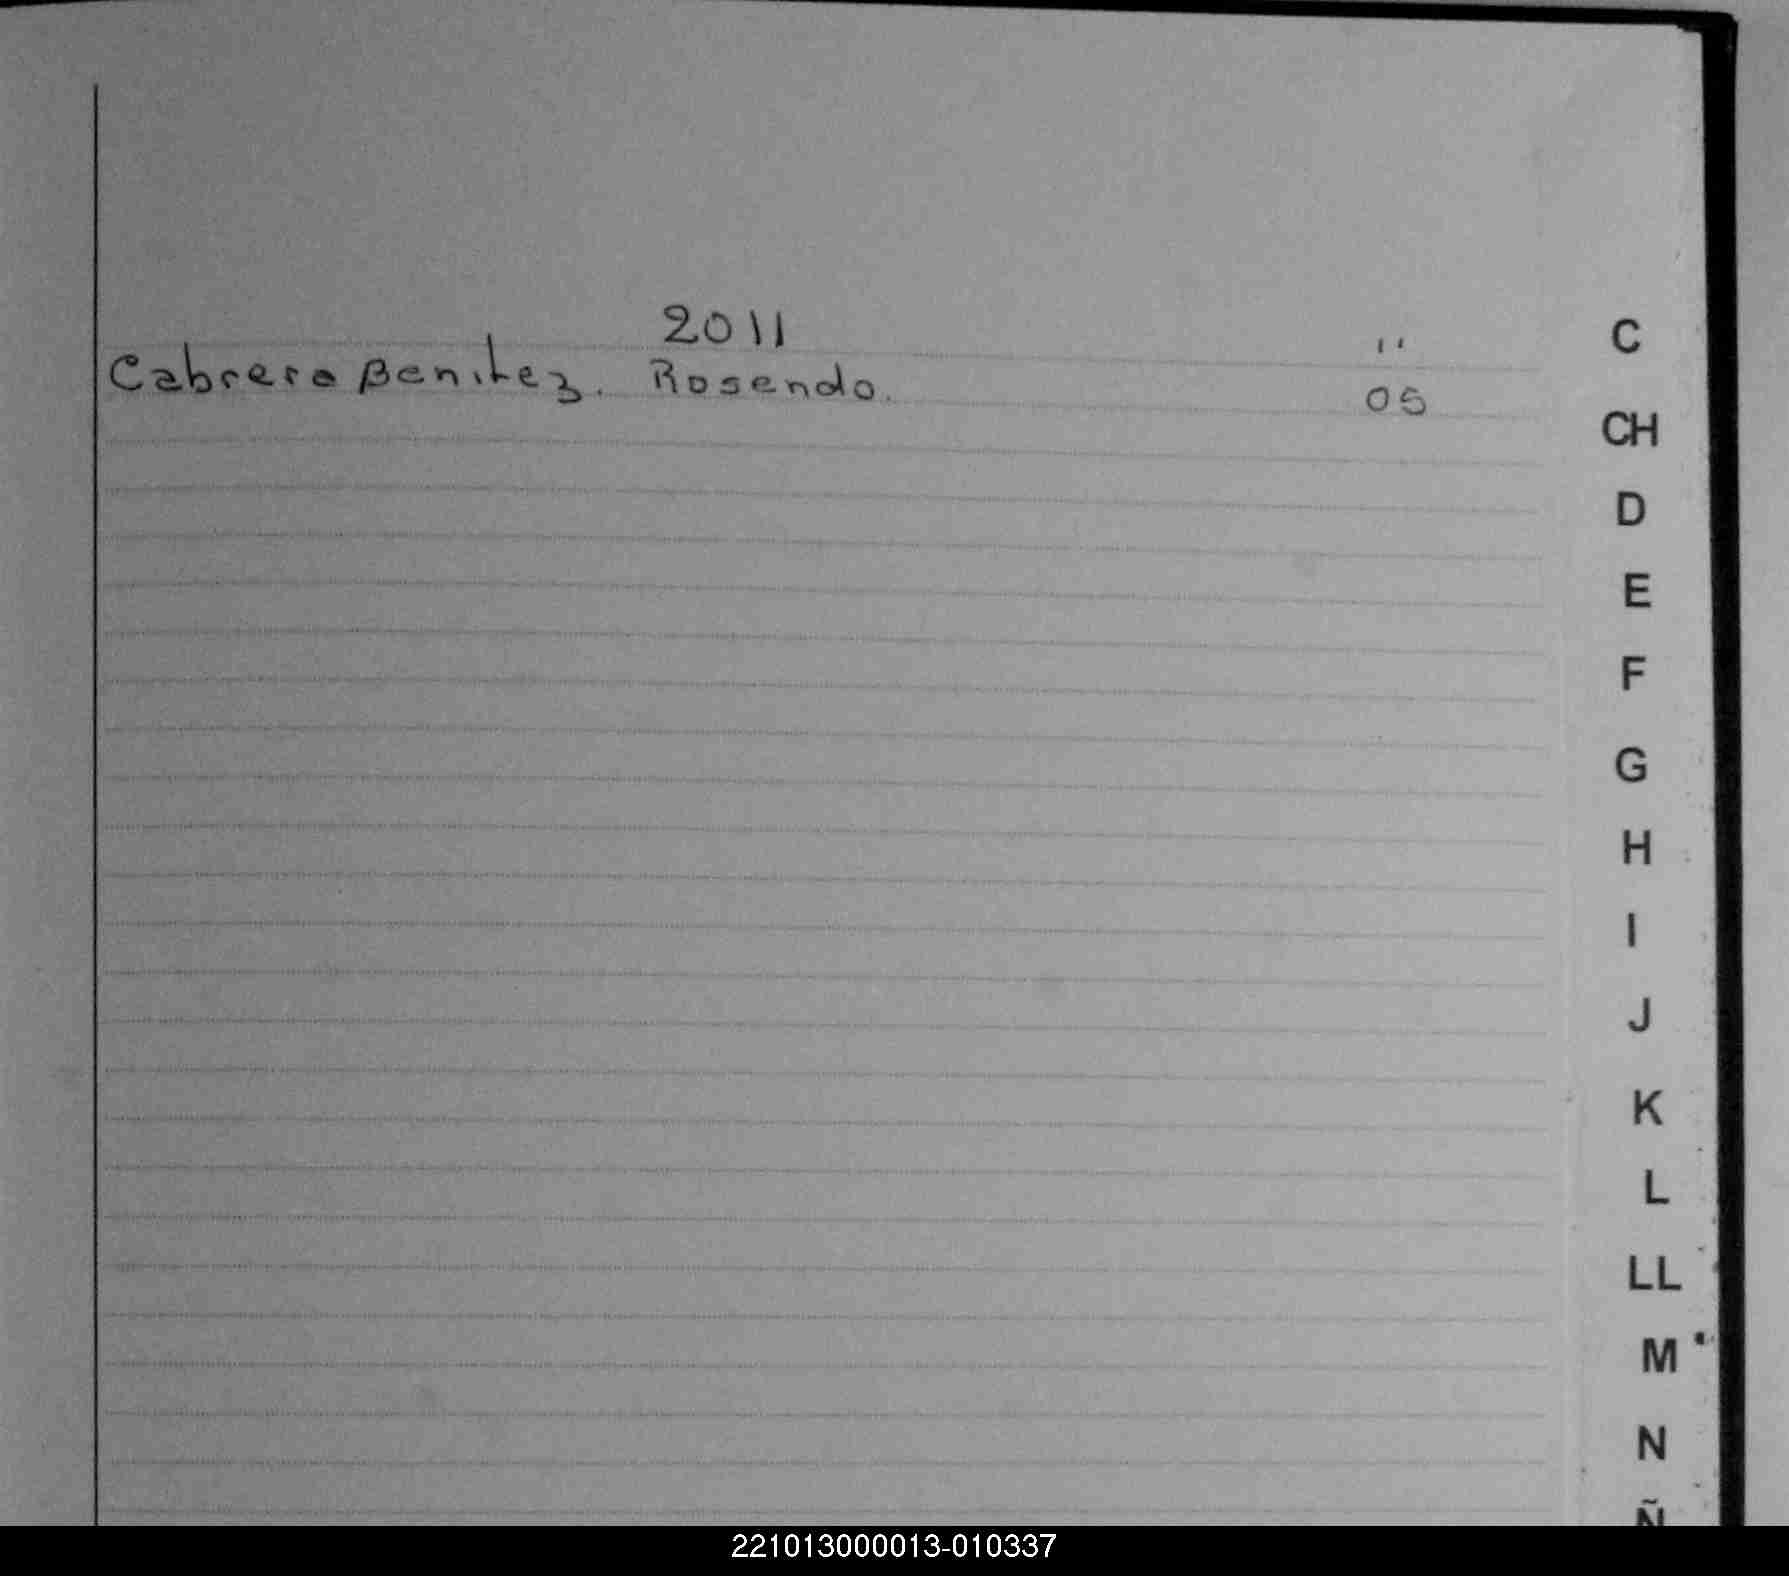 2011
"
C
Cabrera Benitez. Rosendo.
05
CH
D
E
F
G
H
I
J
K
L
LL
M
N
Ñ
221013000013-010337